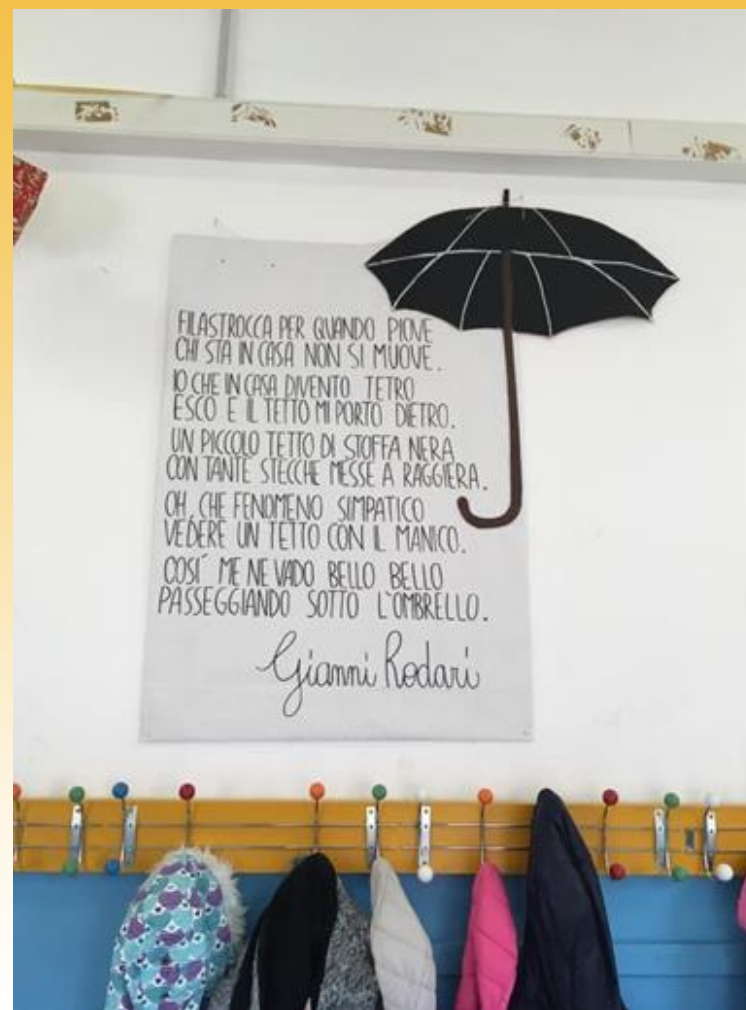 FILASTROCCA PER QUANDO PIOVE
CHI STA IN CASA NON SI MUOVE.
IO CHE IN CASA DIVENTO TETRO
ESCO E IL TETTO MI PORTO DIETRO.
UN PICCOLO TETTO DI STOFFA NERA
CON TANTE STECCHE MESSE A RAGGIERA.
OH, CHE FENOMENO SIMPATICO
VEDERE UN TETTO CON IL MANICO.
COSI´ ME NE VADO BELLO BELLO
PASSEGGIANDO SOTTO L'OMBRELLO.
Gianni Rodari